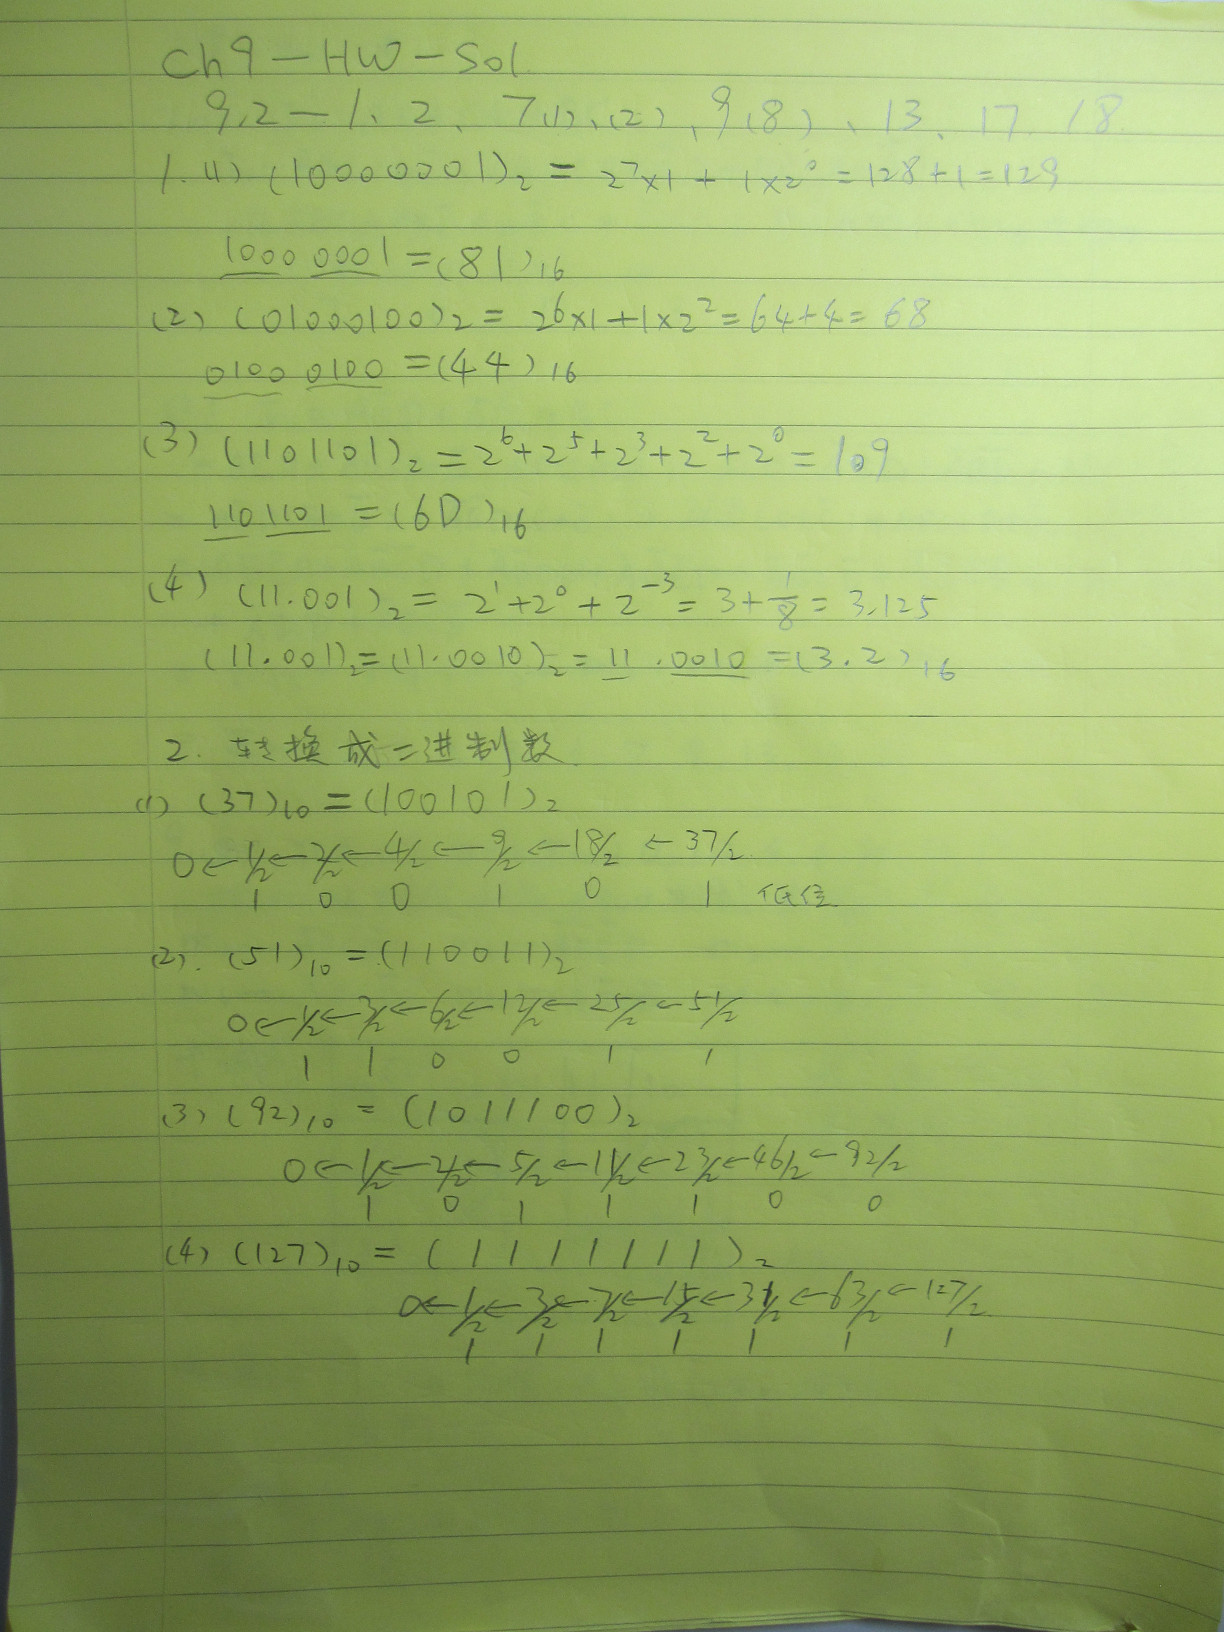 Ch9-HW-Sol
9.2-1、2、7(1)、(2)、9(8)、13、17、18.
1.(1) (10000001)₂ = 2⁷×1 + 1×2⁰ = 128+1 = 129
1000 0001 = (81)₁₆
(2) (01000100)₂ = 2⁶×1+1×2² = 64+4 = 68
0100 0100 = (44)₁₆
(3) (1101101)₂ = 2⁶+2⁵+2³+2²+2⁰ = 109
110 1101 = (6D)₁₆
(4) (11.001)₂ = 2¹+2⁰+2⁻³ = 3+1/8 = 3.125
(11.001)₂=(11.0010)₂ = 11 .0010 = (3.2)₁₆
2. 转换成二进制数
(1) (37)₁₀ = (100101)₂
0←1/2←2/2←4/2←9/2←18/2←37/2
1 0 0 1 0 1 低位
(2). (51)₁₀ = (110011)₂
0←1/2←3/2←6/2←12/2←25/2←51/2
1 1 0 0 1 1
(3) (92)₁₀ = (1011100)₂
0←1/2←2/2←5/2←11/2←23/2←46/2←92/2
1 0 1 1 1 0 0
(4) (127)₁₀ = (1111111)₂
0←1/2←3/2←7/2←15/2←31/2←63/2←127/2
1 1 1 1 1 1 1